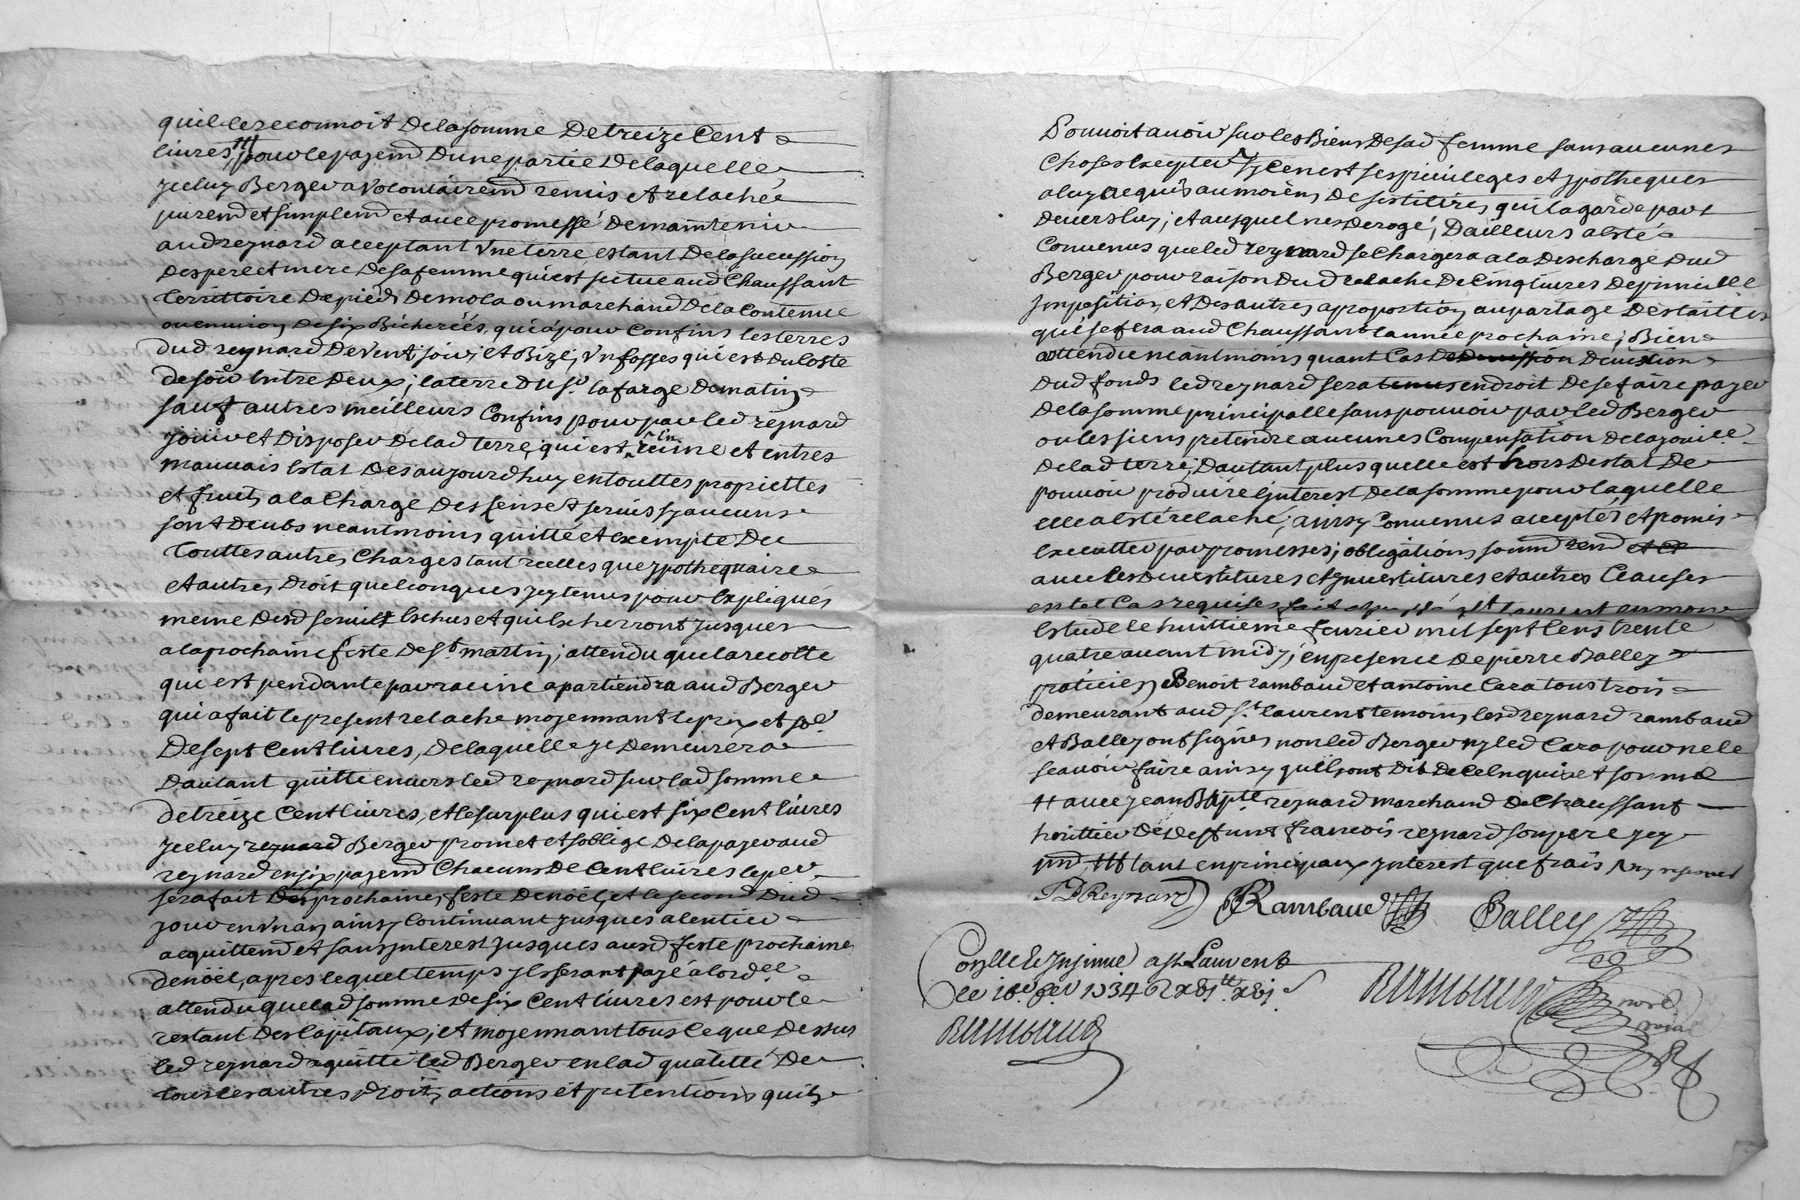 quil le reconnoit de la somme de treize cent
livres ### pour le payemd dune partie de laquelle
jceluy Berger a volontairemd remis et relaché
puremd et simplemd et avec promesse de maintenir
aud reynard acceptant vne terre estant de la sucession
des pere et mere de sa femme qui est scitue aud Chaussant
territtoire de pied de mola ou marchand de la Contenue
ou environ de six Bicherées, qui a pour Confins les terres
dud reynard de vent, soir, et Bize, vn fosses qui est du Coste
de soir entre deux; la terre du sr. lafarge de matin
sauf autres meilleurs Confins pour par led reynard
jouir et disposer de lad terre, qui est en ruine et entres
mauvais Estat des aujourdhuy en touttes propriettes
et fruits a la Charge des Cens et servis sy aucuns
sont deubs neantmoins quitte et exempte de
touttes autres Charges tant reelles que ypothequaire
et autres droit quelconques jcy tenus pour Expliqués
meme desd servis Eschus et qui Escherront jusques
a la prochaine feste de st martin; attendu que la recolte
qui est pendante par racine apartiendra aud Berger
qui a fait le present relache moyennant le prix et s.e
de sept Cent livres, de laquelle je demeurera
dautant quitte envers led reynard sur lad somme
de treize Cent livres, et le surplus qui est six Cent livres
jceluy reynard Berger promet et soblige de la payer aud
reynard en six payemd Chacuns de Cent livres le per.
sera fait des prochaines feste de noël, et le second dud
jour en vn an, ainsy Continuant jusques a lentier
acquittemd et sans jnterest jusques ausd feste prochaine
de noël, apres lequel temps jls seront payé a lord.ee
attendu que lad somme de six Cent livres est pour le
restant des Capitaux, et moyennant tous ce que dessus
led reynard a quitte led Berger en lad qualitté de
tous les autres droits, actions et pretentions quil
Pouvoit avoir sur les Biens de sad femme sans aucunes
Choses Excepter, sy Ce nest ses privileges et ypotheques
a luy acquis au moiens de ses tiltres quil a gardé part
devers luy, et ausquel nes derogé; Dailleurs a esté
Convenus que led reynard se Chargera a la descharge dud
Berger pour raison dud relache de Cinq livres de premielle
jmposition, et des autres a proportion au partage des tailles
qui se fera aud Chaussant lannée prochaine; Bien
entendu neantmoins quant Cas de deviction
dud fonds led reynard sera tenus en droit de se faire payer
de la somme principalle sans pouvoir par led Berger
ou les siens pretendre aucunes Compensation de la jouiss.
de lad terre, dautant plus quelle est hors destat de
pouvoir produire linterest de la somme pour laquelle
elle a esté relaché, ainsy Convenus acceptés et promis
executter par promesses; obligations soumd rend et Ca
avec les devestitures et jnvestitures et autres Clauses
en tel Cas requises fait et passé a st laurent en mon
Estude le huittieme fevrier mil sept Cens trente
quatre avant midy; en presence de pierre Balley
praticien, Benoit rambaud et antoine Cara tous trois
demeurant aud st. laurent temoins, lesd reynard rambaud
et Balley ont signés non led Berger ny led Cara pour ne le
scavoir faire ainsy quils ont dit de Ce Enquis et sommé
## avec jean Bapte reynard marchand de Chaussant
herittier de deffunt francois reynard son pere jcy
pnd, ### tant en principaux jnterest que frais
J B Reynard Rambaud Balley
Conlle & Insinué a st Laurent
le 18e fev 1734
Rambaud
Rambaud nore
roial